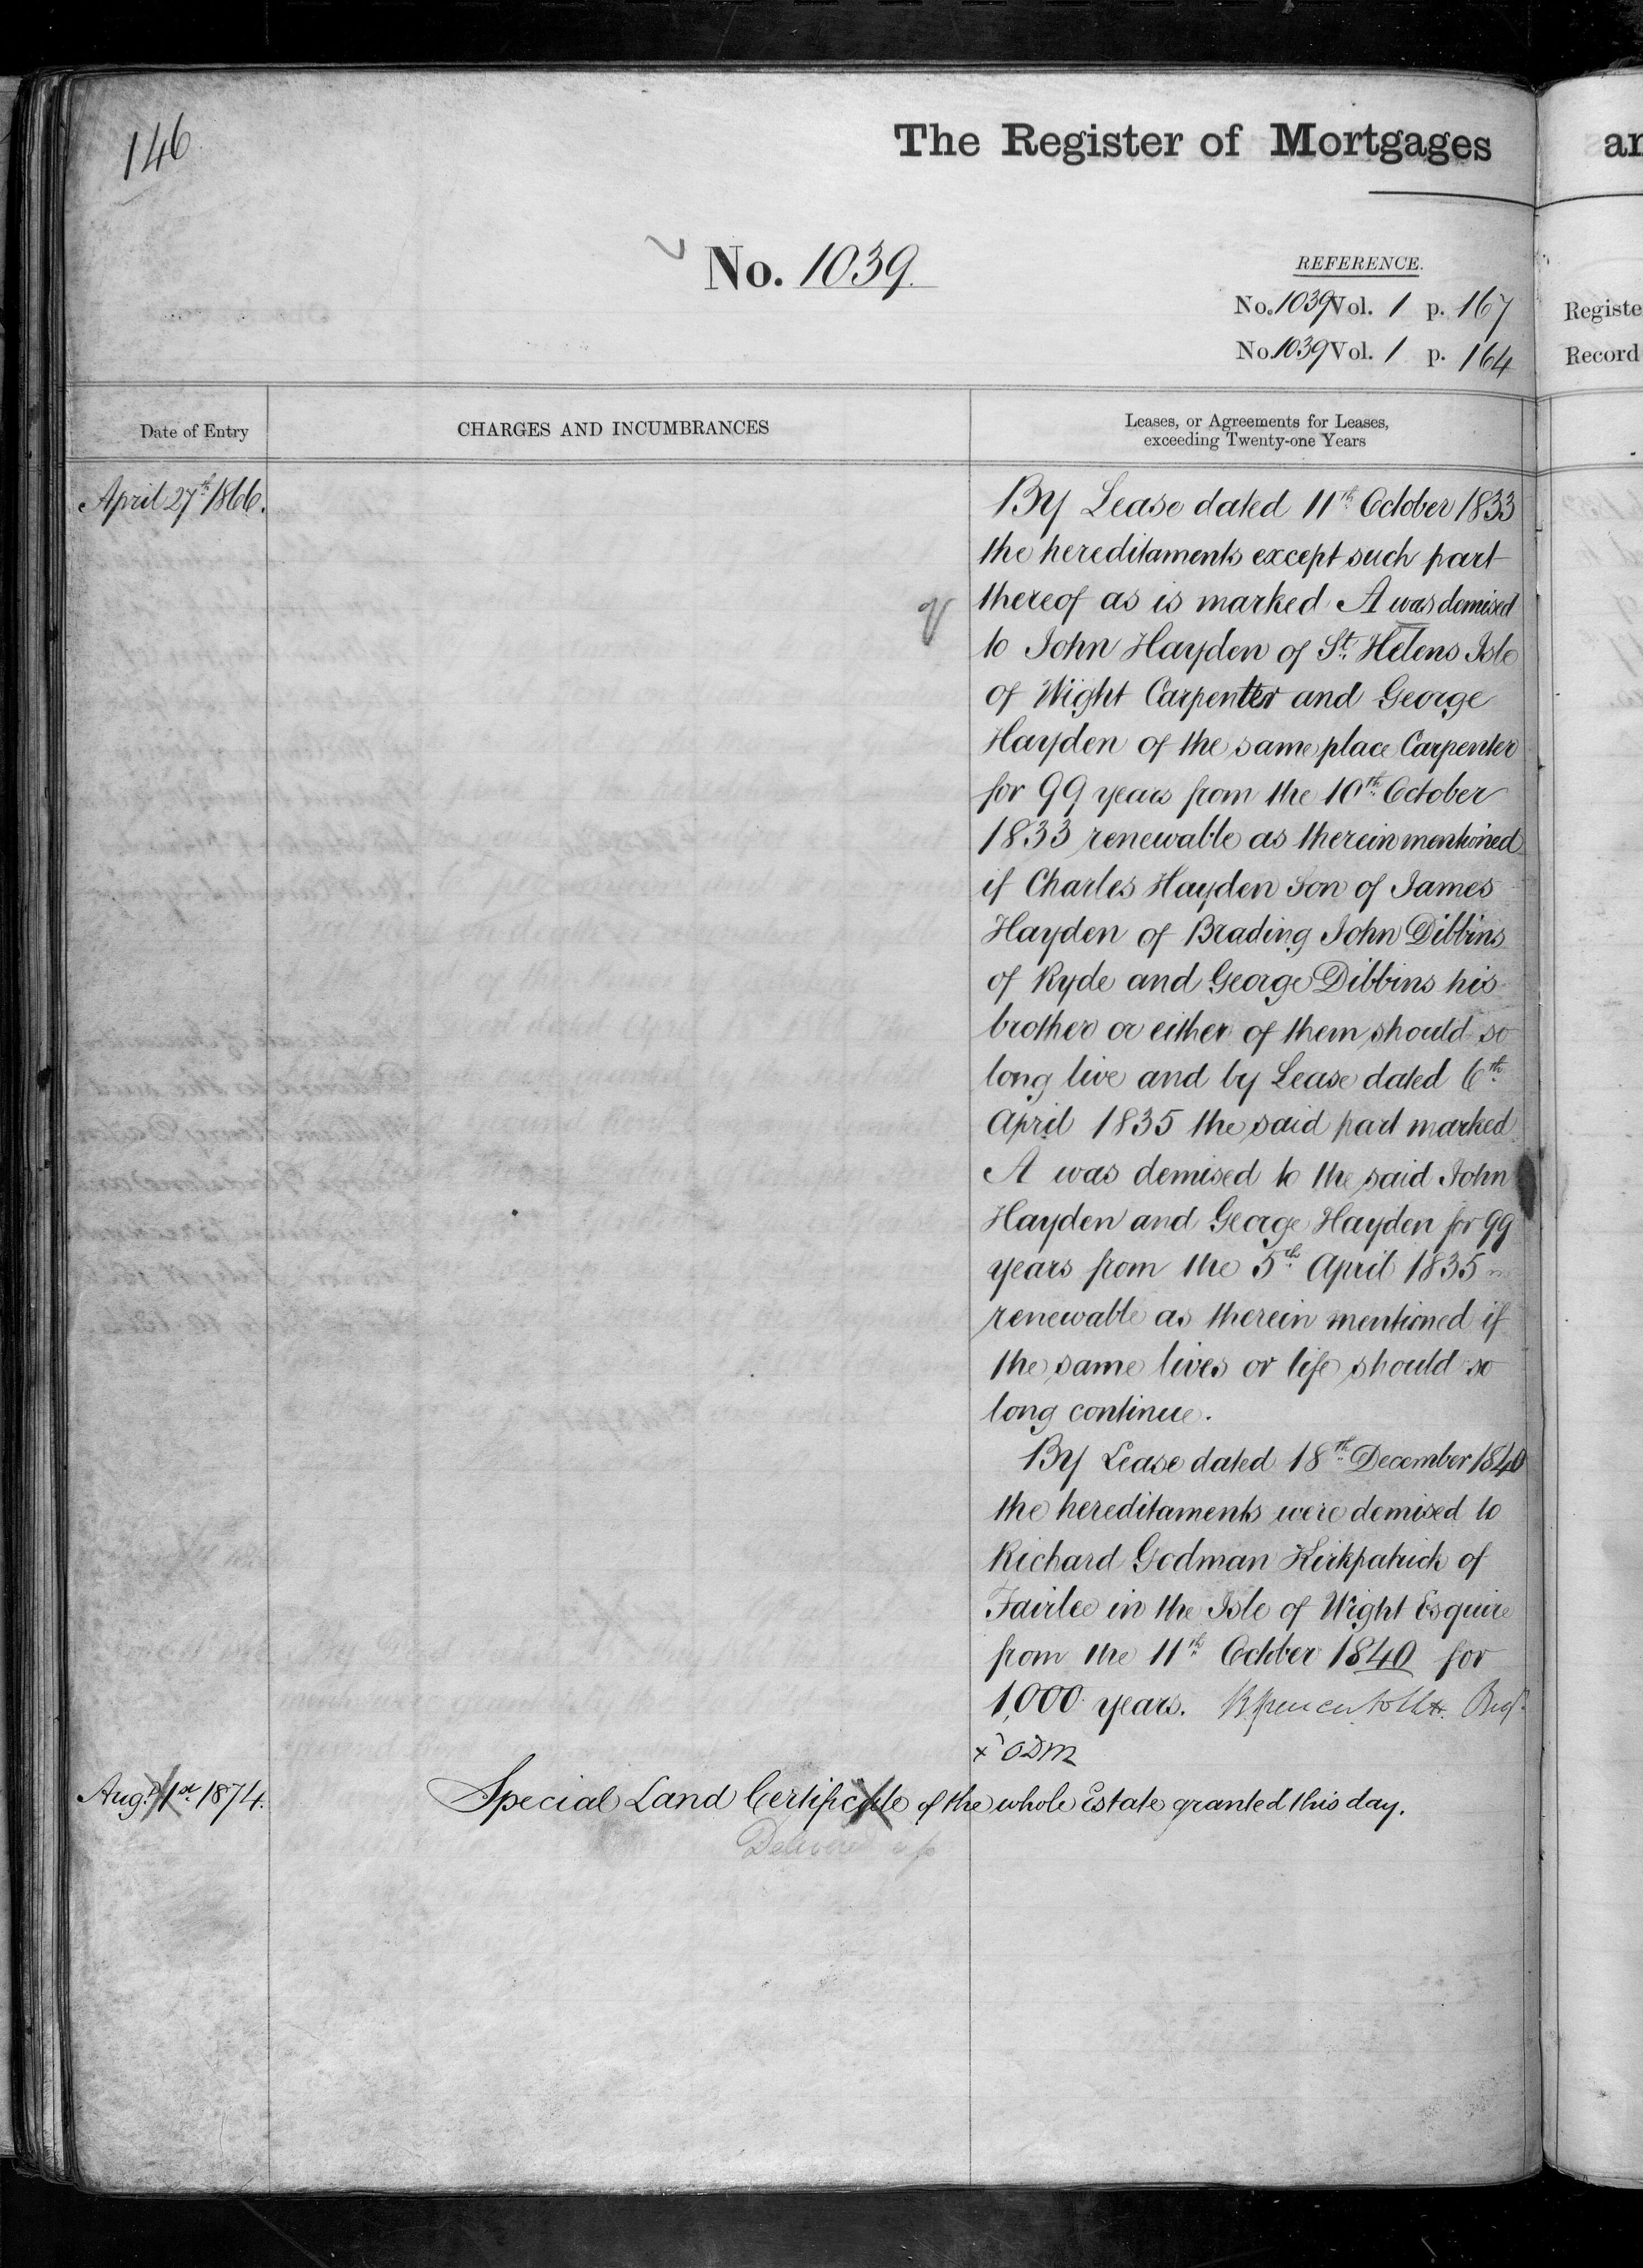 146
The Register of Mortgages
an
No. 1039.
REFERENCE.
No. 1039 Vol. 1 p. 167
No. 1039 Vol. 1 p. 164
Registe
Record
Date of Entry
CHARGES AND INCUMBRANCES
Leases, or Agreements for Leases,
exceeding Twenty-one Years
April 27th 1866.
By Lease dated 11th October 1833
the hereditaments except such part
thereof as is marked A was demised
to John Hayden of St. Helens Isle
of Wight Carpenter and George
Hayden of the same place Carpenter
for 99 years from the 10th October
1833 renewable as therein mentioned
if Charles Hayden Son of James
Hayden of Brading John Dibbins
of Ryde and George Dibbins his
brother or either of them should so
long live and by Lease dated 6th
April 1835 the said part marked
A was demised to the said John
Hayden and George Hayden for 99
years from the 5th April 1835
renewable as therein mentioned if
the same lives or life should so
long continue.
By Lease dated 18th December 1840
the hereditaments were demised to
Richard Godman Kirkpatrick of
Fairlee in the Isle of Wight Esquire
from the 11th October 1840 for
1,000 years.
Augt. 1st 1874.
Special Land Certificate of the whole Estate granted this day.
Delivered up